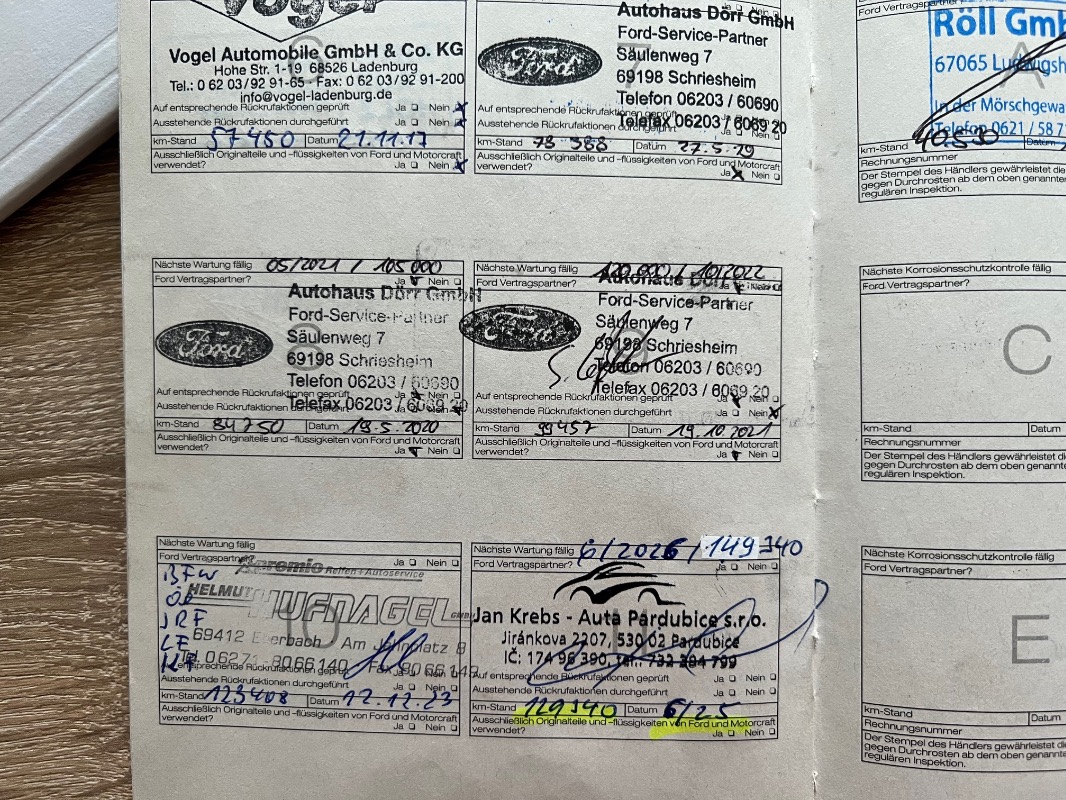 Vogel
Vogel Automobile GmbH & Co. KG
Hohe Str. 1-19 68526 Ladenburg
Tel.: 0 62 03/92 91-65 · Fax: 0 62 03/92 91-200
info@vogel-ladenburg.de
Auf entsprechende Rückrufaktionen geprüft Ja Nein
Ausstehende Rückrufaktionen durchgeführt Ja Nein
km-Stand 57 450 Datum 21.11.17
Ausschließlich Originalteile und –flüssigkeiten von Ford und Motorcraft
verwendet? Ja Nein
Autohaus Dörr GmbH
Ford-Service-Partner
Ford
Säulenweg 7
69198 Schriesheim
Telefon 06203 / 60690
Auf entsprechende Rückrufaktionen geprüft
Telefax 06203 / 6069 20
Ausstehende Rückrufaktionen durchgeführt
km-Stand 73 588 Datum 27.5.19
Ausschließlich Originalteile und –flüssigkeiten von Ford und Motorcraft
verwendet? Ja Nein
Ford Vertragspartner?
A
Röll GmbH
67065 Ludwigsh
In der Mörschgewa
Telefon 0621 / 58 7
km-Stand 40530
Rechnungsnummer
Der Stempel des Händlers gewährleistet die
gegen Durchrosten ab dem oben genannte
regulären Inspektion.
Nächste Wartung fällig 05/2021 / 105 000
Ford Vertragspartner? Ja Nein
8
Autohaus Dörr GmbH
Ford-Service-Partner
Ford
Säulenweg 7
69198 Schriesheim
Telefon 06203 / 60690
Auf entsprechende Rückrufaktionen geprüft Ja Nein
Telefax 06203 / 6069 20
Ausstehende Rückrufaktionen durchgeführt Ja Nein
km-Stand 84750 Datum 19.5.2020
Ausschließlich Originalteile und –flüssigkeiten von Ford und Motorcraft
verwendet? Ja Nein
Nächste Wartung fällig 120.000 / 10/2022
Ford Vertragspartner? Ja Nein
9
Autohaus Dörr GmbH
Ford-Service-Partner
Ford
Säulenweg 7
69198 Schriesheim
Telefon 06203 / 60690
Auf entsprechende Rückrufaktionen geprüft Ja Nein
Telefax 06203 / 6069 20
Ausstehende Rückrufaktionen durchgeführt Ja Nein
km-Stand 99457 Datum 19.10.2021
Ausschließlich Originalteile und –flüssigkeiten von Ford und Motorcraft
verwendet? Ja Nein
Nächste Korrosionsschutzkontrolle fällig
Ford Vertragspartner?
C
km-Stand Datum
Rechnungsnummer
Der Stempel des Händlers gewährleistet die
gegen Durchrosten ab dem oben genannte
regulären Inspektion.
Nächste Wartung fällig
Ford Vertragspartner? Ja Nein
10
BFW
Öl
JRF
LF
KF
Premio Reifen+Autoservice
HELMUT HUFNAGEL GmbH
69412 Eberbach Am Ohrsplatz 8
Tel. 06271 8066140 Fax 8066149
Auf entsprechende Rückrufaktionen geprüft
Ausstehende Rückrufaktionen durchgeführt Ja Nein
km-Stand 123408 Datum 12.12.23
Ausschließlich Originalteile und –flüssigkeiten von Ford und Motorcraft
verwendet? Ja Nein
Nächste Wartung fällig 6/2026 / 149340
Ford Vertragspartner? Ja Nein
Jan Krebs - Auta Pardubice s.r.o.
Jiránkova 2207, 530 02 Pardubice
IČ: 174 96 390, tel.: 732 284 799
Auf entsprechende Rückrufaktionen geprüft Ja Nein
Ausstehende Rückrufaktionen durchgeführt Ja Nein
km-Stand 129340 Datum 6/25
Ausschließlich Originalteile und –flüssigkeiten von Ford und Motorcraft
verwendet? Ja Nein
Nächste Korrosionsschutzkontrolle fällig
Ford Vertragspartner?
E
km-Stand Datum
Rechnungsnummer
Der Stempel des Händlers gewährleistet die
gegen Durchrosten ab dem oben genannte
regulären Inspektion.